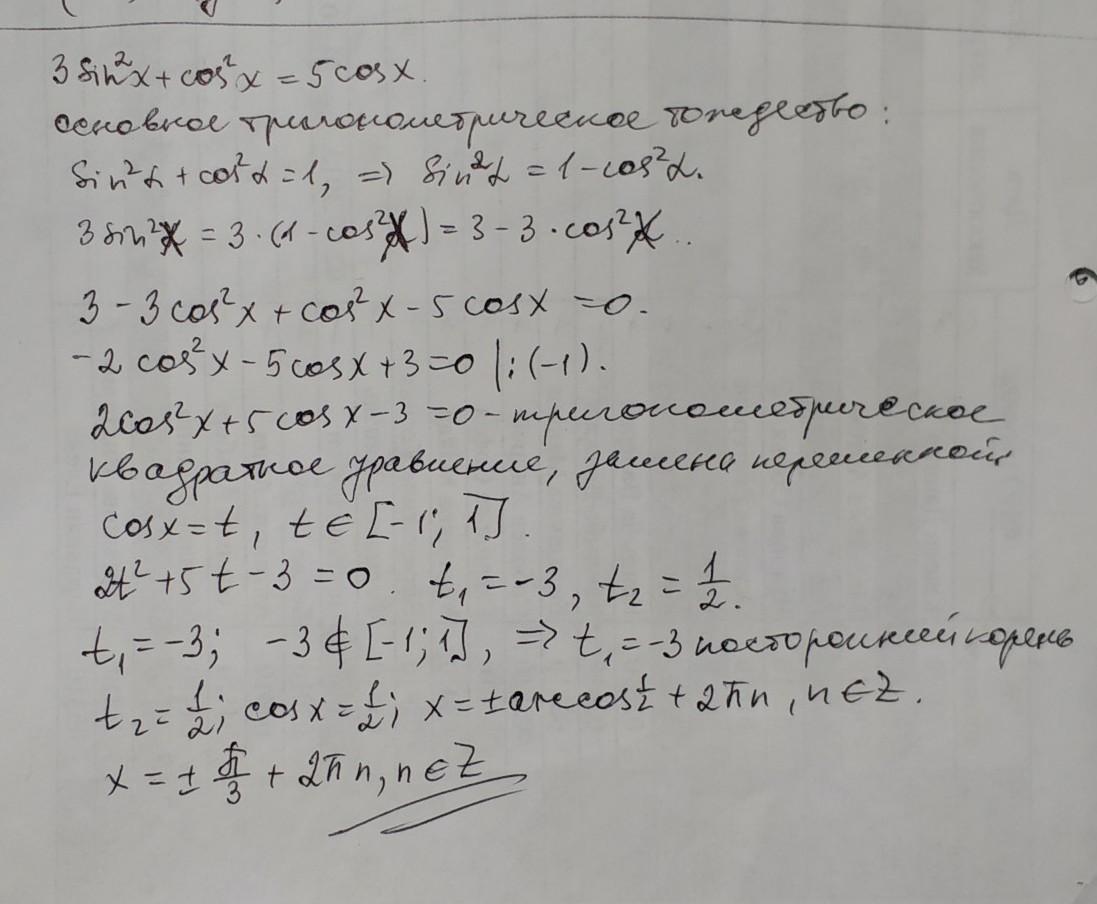 3 sin²x + cos²x = 5 cosx.
основное тригонометрическое тождество:
sin²α + cos²α = 1, => sin²α = 1 - cos²α.
3 sin²x = 3 · (1 - cos²x) = 3 - 3 · cos²x..
3 - 3 cos²x + cos²x - 5 cosx = 0.
-2 cos²x - 5 cosx + 3 = 0 |: (-1).
2cos²x + 5 cosx - 3 = 0 - тригонометрическое
квадратное уравнение, замена переменной
cosx = t, t ∈ [-1; 1].
2t² + 5t - 3 = 0. t₁ = -3, t₂ = 1/2.
t₁ = -3; -3 ∉ [-1; 1], => t₁ = -3 посторонний корень
t₂ = 1/2; cosx = 1/2; x = ±arccos 1/2 + 2πn, n ∈ Z.
x = ± π/3 + 2πn, n ∈ Z